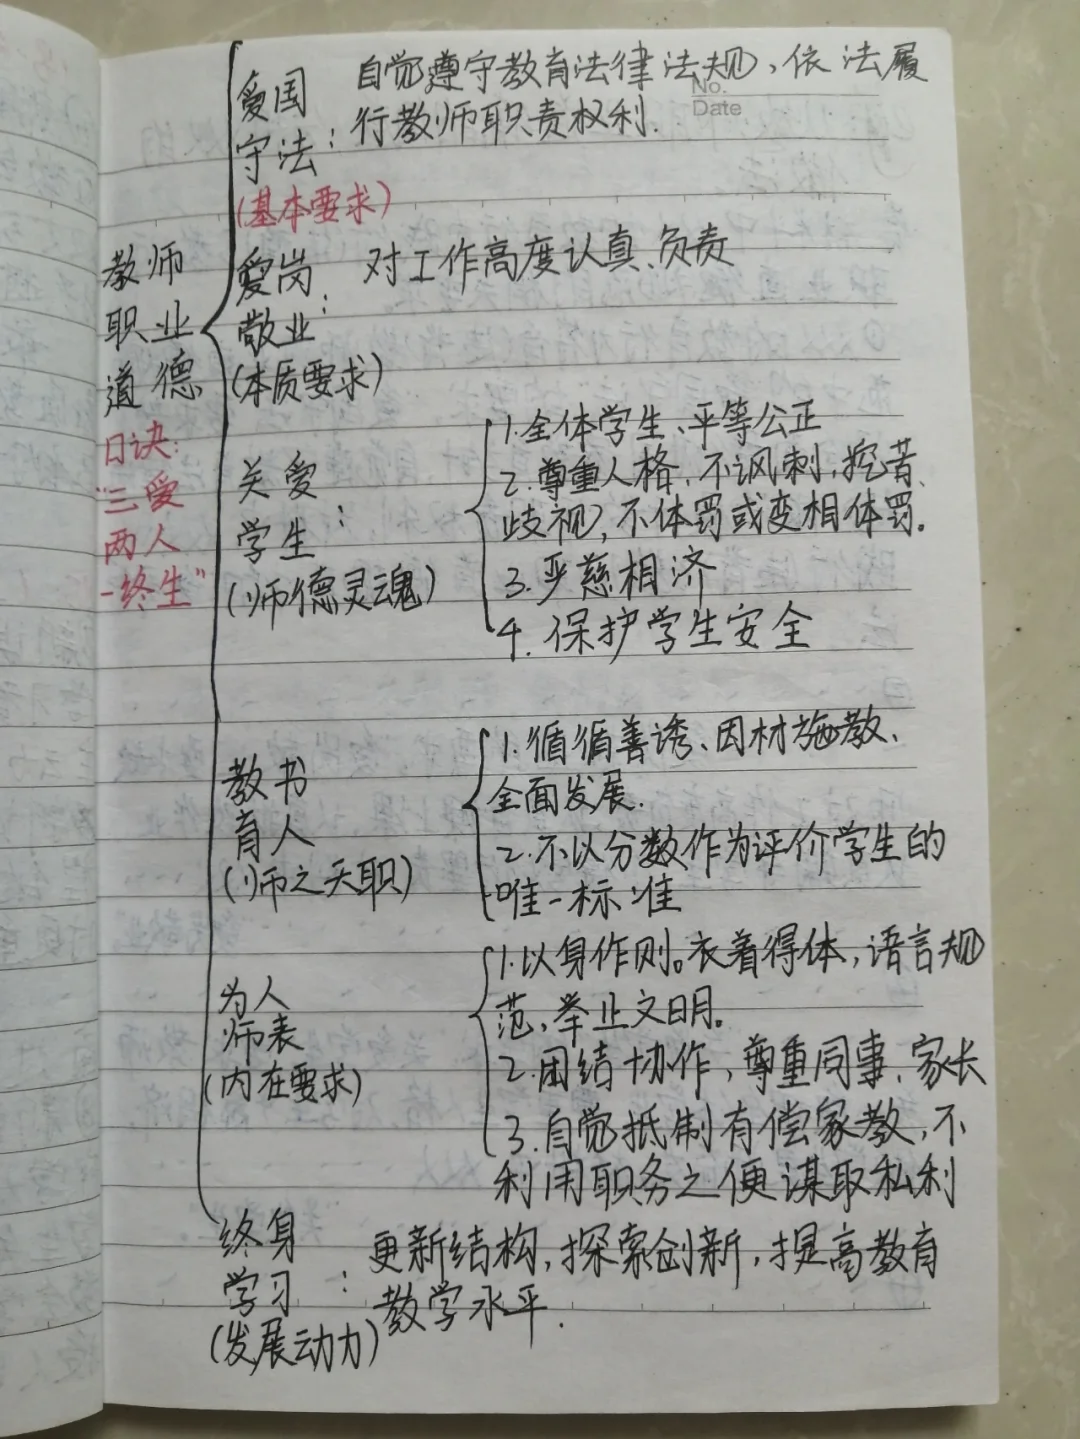 No.
Date
教师
职业
道德
口诀：
"三爱
两人
一终生"
爱国
守法：
(基本要求)
自觉遵守教育法律法规、依法履
行教师职责权利.
爱岗
敬业：
(本质要求)
对工作高度认真、负责
关爱
学生：
(师德灵魂)
1.全体学生、平等公正
2.尊重人格，不讽刺，挖苦、
歧视，不体罚或变相体罚.
3.严慈相济
4.保护学生安全
教书
育人
(师之天职)
1.循循善诱、因材施教、
全面发展.
2.不以分数作为评价学生的
唯一标准
为人
师表
(内在要求)
1.以身作则。衣着得体，语言规
范，举止文明。
2.团结协作，尊重同事、家长
3.自觉抵制有偿家教，不
利用职务之便谋取私利
终身
学习：
(发展动力)
更新结构，探索创新，提高教育
教学水平.